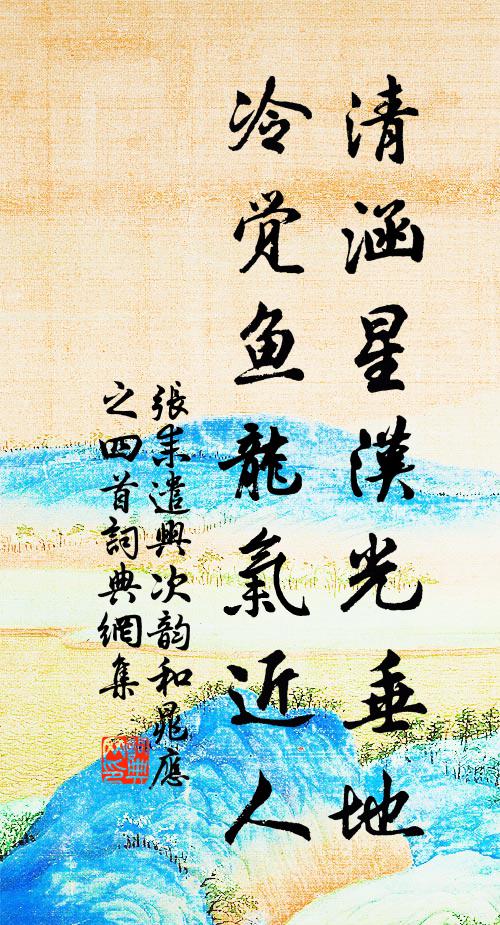 清涵星漢光垂地
冷覺魚龍氣近人
張耒遣興次韵和晁應
之四首詞典網集